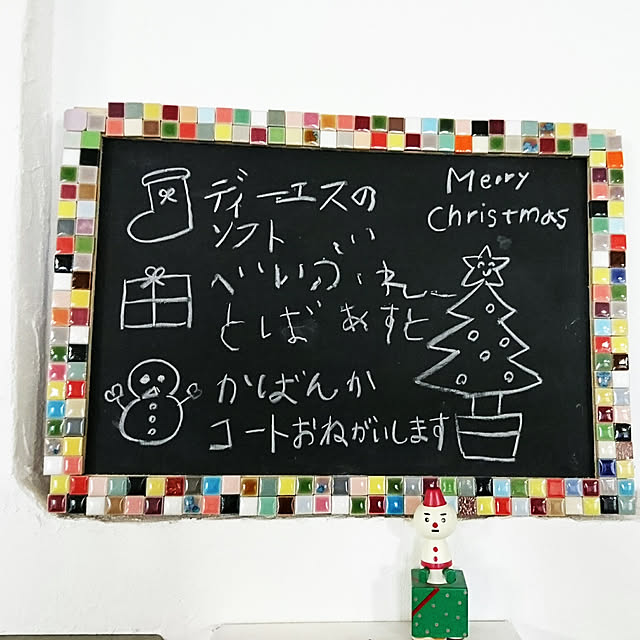 ディーエスの
ソフト
べいぶれーど
とばーすと
かばんか
コートおねがいします
Merry
Christmas